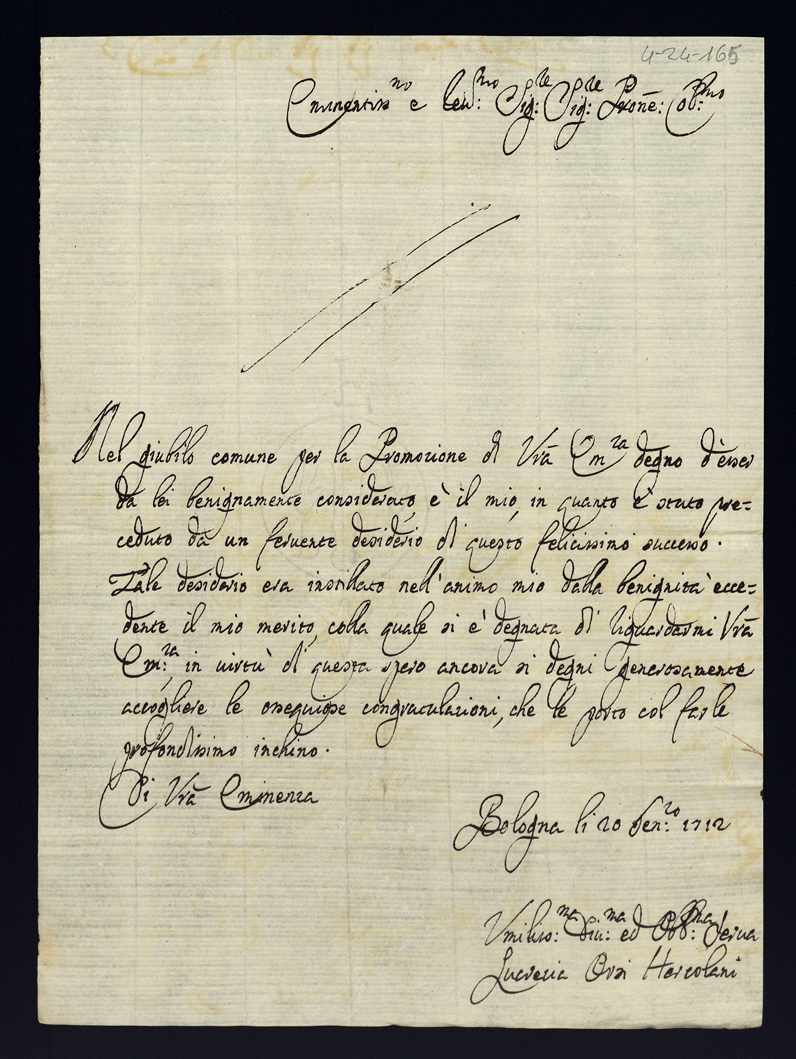 4-24-165
Eminentis.mo e Rev:mo Sig:re Sig:re Prone: Ob:mo
Nel giubilo comune per la Promozione di Vrã Em:za degno d'esser
da lei benignamente considerato, è il mio, in quanto è stato pre=
ceduto da un feruente desiderio di questo felicissimo successo.
Tale desiderio era instillato nell'animo mio dalla benignità ecce=
dente il mio merito, colla quale si è degnata di riguardarmi Vrã
Em:za, in uirtù di questa spero ancora si degni generosamente
accogliere le ossequiose congratulazioni, che le porto col farle
profondissimo inchino.
Di Vrã Eminenza
Bologna li 20 Gen:ro 1712
Vmiliss:ma Diu:ma ed Obb:ma Serua
Lucrezia Orsi Hercolani